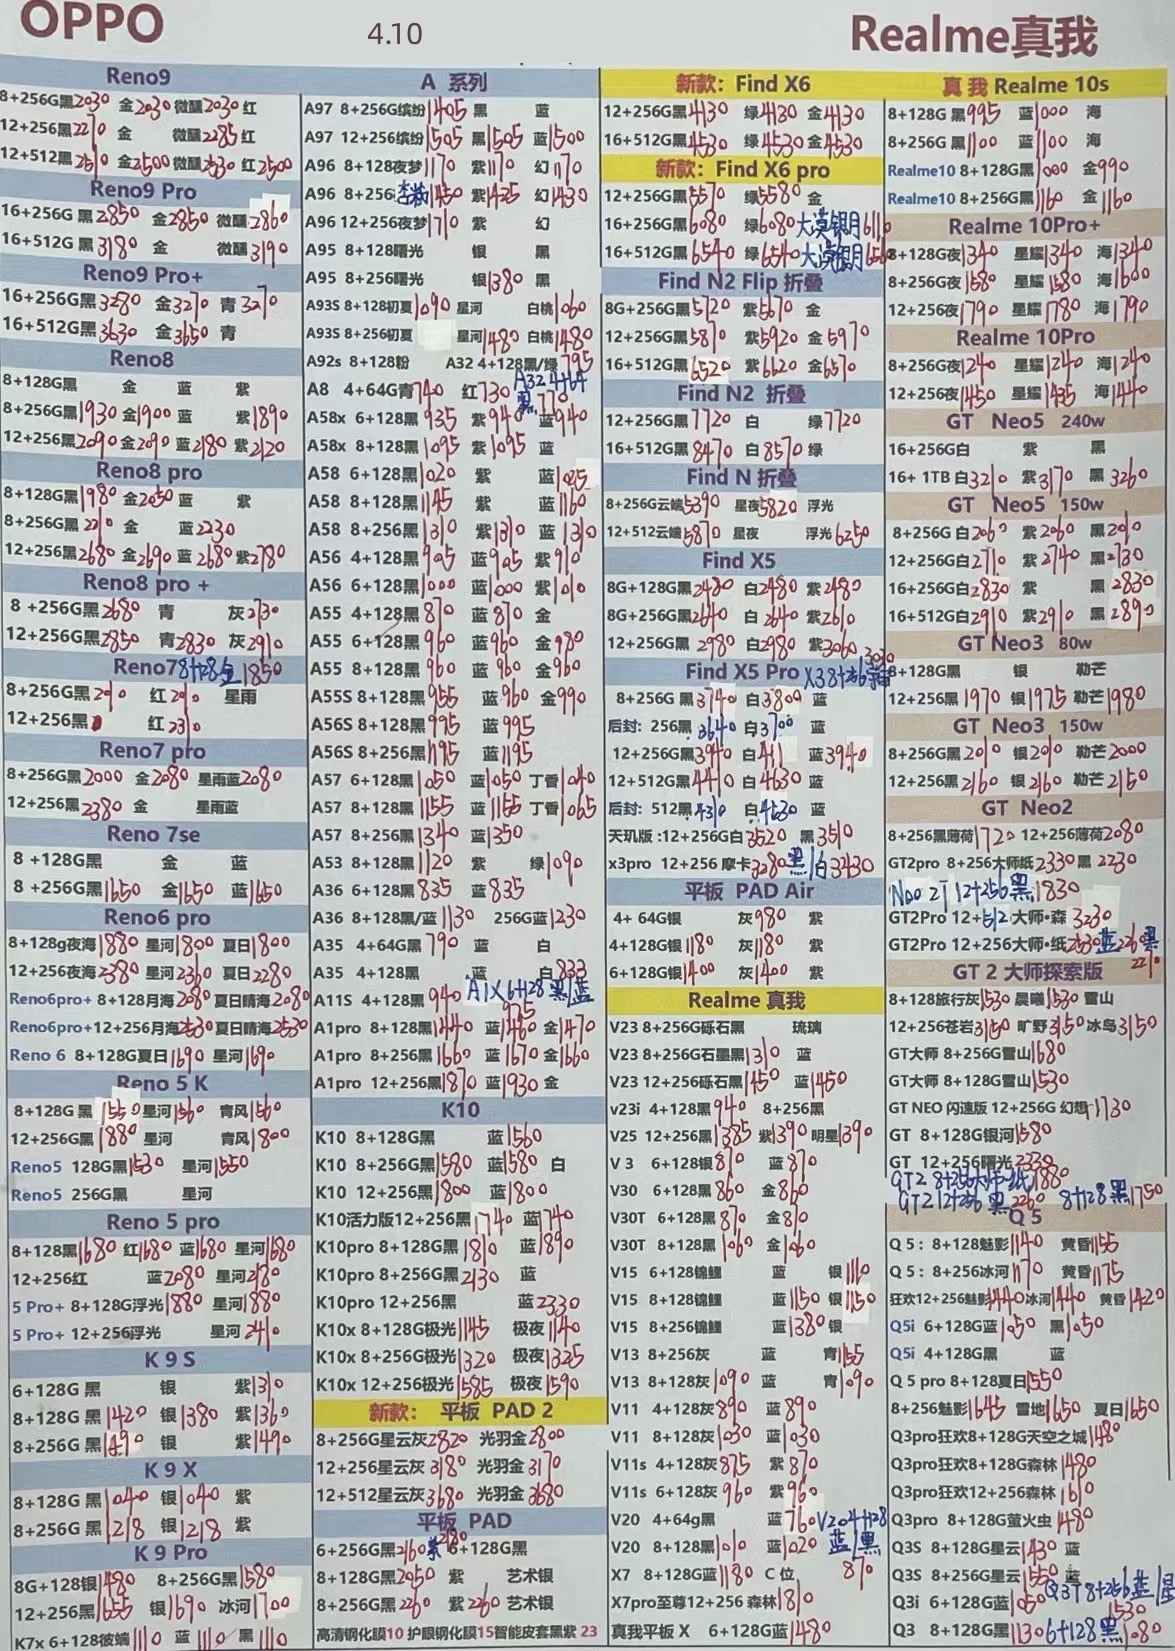 OPPO
4.10
Realme真我
Reno9
8+256G黑2030 金2030 微醺2030 红
12+256黑2210 金 微醺2285 红
12+512黑2510 金2500 微醺2530 红2500
Reno9 Pro
16+256G 黑2850 金2850 微醺2860
16+512G 黑3180 金 微醺3190
Reno9 Pro+
16+256G黑3280 金3270 青3270
16+512G黑3630 金3650 青
Reno8
8+128G黑 金 蓝 紫
8+256G黑1930 金1900 蓝 紫1890
12+256黑2090 金2090 蓝2180 紫2120
Reno8 pro
8+128G黑1980 金2050 蓝 紫
8+256G黑2210 金 蓝2230
12+256黑2680 金2690 蓝2680 紫2780
Reno8 pro +
8 +256G黑2680 青 灰2730
12+256G黑2850 青2830 灰2910
Reno7 8+128金1850
8+256G黑2010 红2010 星雨
12+256黑 红2310
Reno7 pro
8+256G黑2000 金2080 星雨蓝2080
12+256黑2380 金 星雨蓝
Reno 7se
8 +128G黑 金 蓝
8 +256G黑1650 金1650 蓝1650
Reno6 pro
8+128g夜海1880 星河1800 夏日1800
12+256夜海2380 星河2360 夏日2280
Reno6pro+ 8+128月海2080 夏日晴海2080
Reno6pro+12+256月海2530 夏日晴海2530
Reno 6 8+128G夏日1690 星河1690
Reno 5 K
8+128G 黑1550 星河1560 青风1560
12+256G黑1880 星河 青风1800
Reno5 128G黑1530 星河1550
Reno5 256G黑 星河
Reno 5 pro
8+128黑1680 红1680 蓝1680 星河1680
12+256红 蓝2080 星河2180
5 Pro+ 8+128G浮光1880 星河1880
5 Pro+ 12+256浮光 星河2410
K 9 S
6+128G 黑 银 紫1310
8+128G 黑1420 银1380 紫1360
8+256G 黑1490 银 紫1490
K 9 X
8+128G 黑1040 银1040 紫
8+256G 黑1218 银1218 紫
K 9 Pro
8G+128银1480 8+256G黑1580
12+256黑1655 银1690 冰河1700
K7x 6+128彼嫡1110 蓝1110 黑1110
A 系列
A97 8+256G缤纷1405 黑 蓝
A97 12+256缤纷1505 黑1505 蓝1500
A96 8+128夜梦1170 紫1170 幻1170
A96 8+256 1430 紫1425 幻1430
A96 12+256夜梦1710 紫 幻
A95 8+128曙光 银 黑
A95 8+256曙光 银1380 黑
A93S 8+128初夏1090 星河 白桃1060
A93S 8+256初夏 星河1480 白桃1480
A92s 8+128粉 A32 4+128黑/绿795
A8 4+64G青740 红730 A32 4+64黑770
A58x 6+128黑935 紫940 蓝940
A58x 8+128黑1095 紫1095 蓝
A58 6+128黑1020 紫 蓝1025
A58 8+128黑1145 紫 蓝1160
A58 8+256黑1310 紫1310 蓝1310
A56 4+128黑905 蓝905 紫910
A56 6+128黑1000 蓝1000 紫1010
A55 4+128黑870 蓝870 金
A55 6+128黑960 蓝960 金980
A55 8+128黑960 蓝960 金960
A55S 8+128黑955 蓝960 金990
A56S 8+128黑995 蓝995
A56S 8+256黑1195 蓝1195
A57 6+128黑1050 蓝1050 丁香1040
A57 8+128黑1155 蓝1155 丁香1065
A57 8+256黑1340 蓝1350
A53 8+128黑1120 紫 绿1090
A36 6+128黑835 蓝835
A36 8+128黑/蓝1130 256G蓝1230
A35 4+64G黑790 蓝 白
A35 4+128黑 蓝 白833
A11S 4+128黑940 A1X 6+128 黑/蓝975
A1pro 8+128黑1440 蓝1460 金1470
A1pro 8+256黑1660 蓝1670 金1660
A1pro 12+256黑1870 蓝1930 金
K10
K10 8+128G黑 蓝1560
K10 8+256G黑1580 蓝1580 白
K10 12+256黑1800 蓝1800
K10活力版12+256黑1740 蓝1740
K10pro 8+128G黑1810 蓝1890
K10pro 8+256G黑2130 蓝
K10pro 12+256黑 蓝2330
K10x 8+128G极光1145 极夜1140
K10x 8+256G极光1320 极夜1325
K10x 12+256极光1585 极夜1590
新款： 平板 PAD 2
8+256G星云灰2820 光羽金2800
12+256星云灰3180 光羽金3170
12+512星云灰3680 光羽金3680
平板 PAD
6+256G黑2160 紫2180 6+128G黑
8+128G黑2050 紫 艺术银
8+256G黑2260 紫2260 艺术银
高清钢化膜10 护眼钢化膜15智能皮套黑紫 23
新款: Find X6
12+256G黑4130 绿4130 金4130
16+512G黑4530 绿4530 金4530
新款: Find X6 pro
12+256G黑5570 绿5580 金
16+256G黑6080 绿6080 大漠银月6110
16+512G黑6540 绿6540 大漠银月
Find N2 Flip 折叠
8G+256G黑5720 紫5670 金
12+256G黑5870 紫5920 金5970
16+512G黑6520 紫6620 金6570
Find N2 折叠
12+256G黑7720 白 绿7720
16+512G黑8470 白8570 绿
Find N 折叠
8+256G云端5390 星夜5820 浮光
12+512云端5870 星夜 浮光6250
Find X5
8G+128G黑2480 白2480 紫2480
8G+256G黑2640 白2640 紫2610
12+256G黑2980 白2980 紫3060
Find X5 Pro X3 8+256 3030
8+256G 黑3740 白3800 蓝
后封: 256黑3640 白3700 蓝
12+256G黑3940 白411 蓝3940
12+512G黑4410 白4630 蓝
后封: 512黑4310 白4530 蓝
天玑版 :12+256G白3520 黑3510
x3pro 12+256 摩卡3280 黑/白3430
平板 PAD Air
4+ 64G银 灰980 紫
4+128G银1180 灰1180 紫
6+128G银1400 灰1400 紫
Realme 真我
V23 8+256G砾石黑 琉璃
V23 8+256G石墨黑1310 蓝
V23 12+256砾石黑1450 蓝1450
v23i 4+128黑940 8+256黑
V25 12+256黑1385 紫1390 明星1390
V 3 6+128银870 蓝870
V30 6+128黑860 金860
V30T 6+128黑870 金810
V30T 8+128黑1060 金1060
V15 6+128锦鲤 蓝 银1110
V15 8+128锦鲤 蓝1150 银1150
V15 8+256锦鲤 蓝1380 银
V13 8+256灰 蓝 青1155
V13 8+128灰1090 蓝 青1090
V11 4+128灰890 蓝890
V11 8+128灰1030 蓝1030
V11s 4+128灰875 紫870
V11s 6+128灰960 紫960
V20 4+64g黑 蓝760 V20 4+128
V20 8+128黑1010 蓝1020 蓝/黑
X7 8+128G蓝1180 C 位 870
X7pro至尊12+256 森林1810
真我平板 X 6+128G蓝1480
真 我 Realme 10s
8+128G 黑995 蓝1000 海
8+256G 黑1100 蓝1100 海
Realme10 8+128G黑1000 金990
Realme10 8+256G黑1160 金1160
Realme 10Pro+
8+128G夜1340 星耀1340 海1340
8+256G夜1580 星耀1580 海1600
12+256夜1790 星耀1780 海1790
Realme 10Pro
8+256G夜1240 星耀1240 海1240
12+256夜1450 星耀1435 海1440
GT Neo5 240w
16+256G白 紫 黑
16+ 1TB 白3210 紫3170 黑3260
GT Neo5 150w
8+256G 白2060 紫2060 黑2010
12+256G白2710 紫2740 黑2730
16+256G白2830 紫 黑2830
16+512G白2910 紫2910 黑2890
GT Neo3 80w
8+128G黑 银 勒芒
12+256黑1970 银1975 勒芒1980
GT Neo3 150w
8+256G黑2010 银2010 勒芒2000
12+256黑2160 银2160 勒芒2150
GT Neo2
8+256黑薄荷1720 12+256薄荷2080
GT2pro 8+256大师纸2330 黑2230
Neo 2T 12+256 黑:1830
GT2Pro 12+512大师•森3230
GT2Pro 12+256大师•纸2530 蓝2260 黑2210
GT 2 大师探索版
8+128旅行灰1530 晨曦1530 雪山
12+256苍岩3150 旷野3150 冰岛3150
GT大师 8+256G雪山1680
GT大师 8+128G雪山1530
GT NEO 闪速版 12+256G 幻想1730
GT 8+128G银河1580
GT 12+256曙光2330
GT2 8+256大师-纸1880
GT2 12+256 黑2260 8+128黑1750
Q 5
Q 5 : 8+128魅影1140 黄昏1155
Q 5 : 8+256冰河1170 黄昏1175
狂欢12+256魅影1440 冰河1440 黄昏1420
Q5i 6+128G蓝1050 黑1050
Q5i 4+128G黑 蓝
Q 5 pro 8+128夏日1550
8+256魅影1645 雪地1650 夏日1650
Q3pro狂欢8+128G天空之城1480
Q3pro狂欢8+128G森林1480
Q3pro狂欢12+256森林1610
Q3pro 8+128G萤火虫1480
Q3S 8+128G星云1430 蓝
Q3S 8+256G星云1550 蓝
Q3i 6+128G蓝1050 Q3T 8+256蓝/星1530
Q3 8+128G黑1130 6+128黑1080